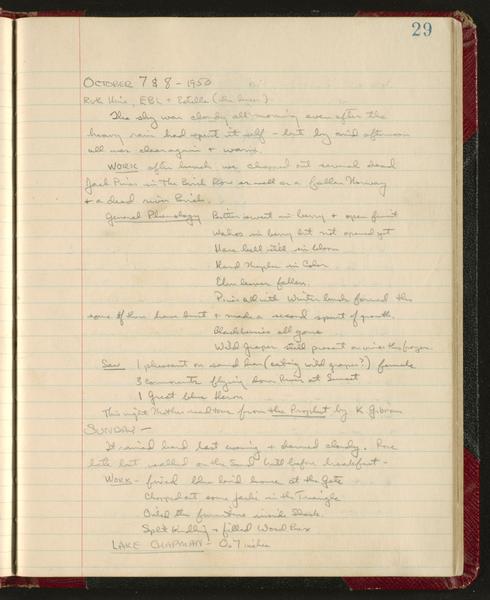 29
OCTOBER 7 & 8 - 1950
EBL + Estella
The sky was cloudy all morning even after the
heavy rain had spent it self - but by mid afternoon
all was clear again & warm.
WORK after lunch we chopped out several dead
Jack Pines in The Birch Row as well as a fallen Norway
+ a dead river Birch.
General Phenology Bittersweet in berry + open fruit
Wahoo in berry but not opened yet
Hare bell still in bloom
Hard Maples in Color
Elm leaves fallen.
Pines all with Winter buds formed tho
some of them have burst + made a second spurt of growth.
Blackberries all gone
Wild Grapes still present on vines tho frozen.
Saw 1 pheasant on sand bar (eating wild grapes?) female
3 cormorants flying down River at Sunset
1 Great blue Heron
This night Mother read to me from the Prophet by K Gibran
SUNDAY -
It rained hard last evening + dawned cloudy. Rose
late but walked on the Sand hill before breakfast -
WORK - fixed blue bird house at the Gate
Chopped out some jacks in the Triangle
Oiled the furniture inside Shack.
Split Kindling + filled Wood Box
LAKE CHAPMAN - 0.7 inches